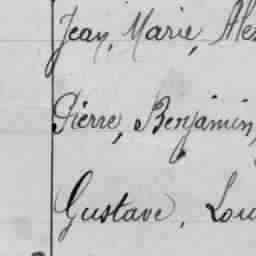 Jean, Marie,
Pierre, Benjamin,
Gustave,